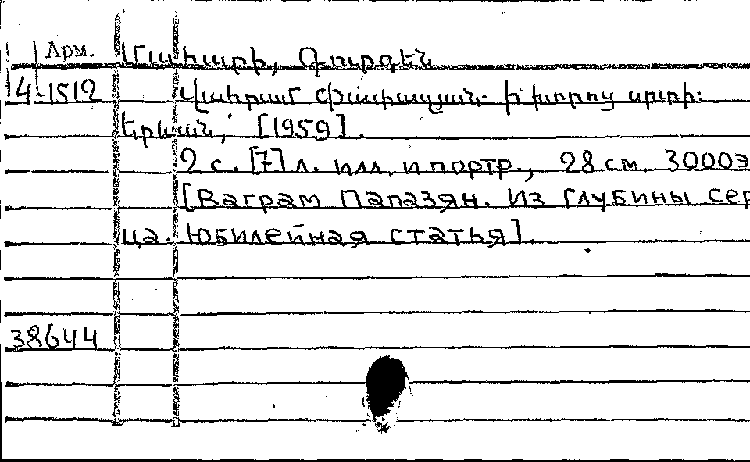 Арм. Մահարի, Գուրգեն
4-1512 Վահրամ Փափազյան. Ի խորոց սրտի:
Երևան, [1959].
2 с. [7] л. илл. и портр., 28 см. 3000э
[Ваграм Папазян. Из глубины сер
ца. Юбилейная статья].
38644